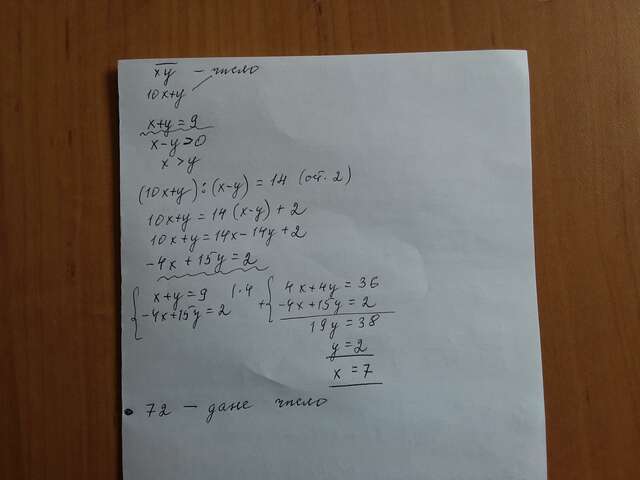 xy — число
10x+y
x+y=9
x-y>0
x>y
(10x+y):(x-y)=14 (ост. 2)
10x+y=14(x-y)+2
10x+y=14x-14y+2
-4x+15y=2
{ x+y=9 |·4 + { 4x+4y=36
-4x+15y=2 -4x+15y=2
19y=38
y=2
x=7
• 72 — дане число